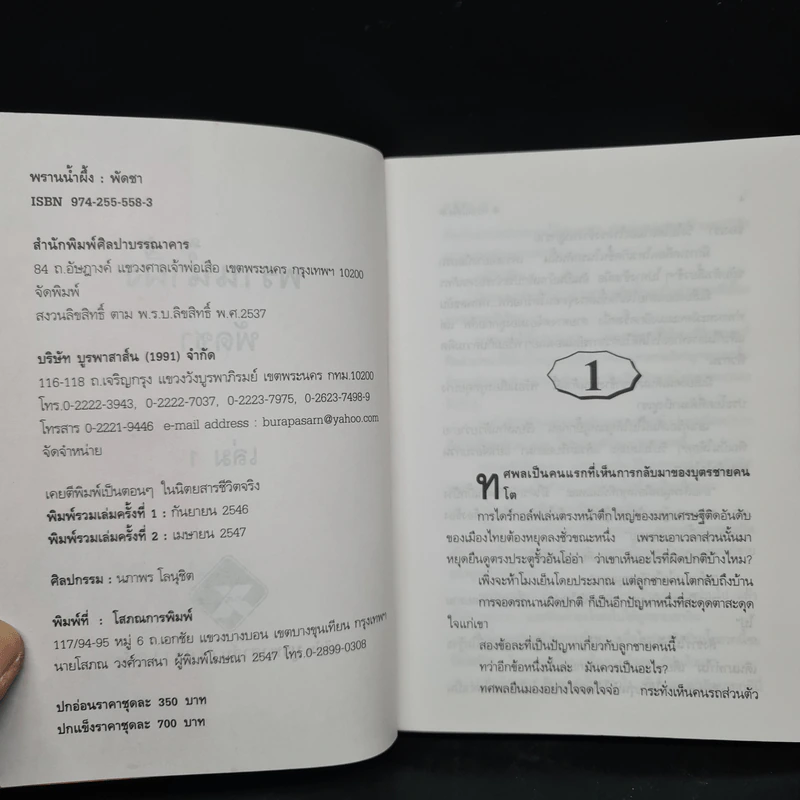 พรานน้ำผึ้ง : พัดชา
ISBN 974-255-558-3
สำนักพิมพ์ศิลปาบรรณาคาร
84 ถ.อัษฎางค์ แขวงศาลเจ้าพ่อเสือ เขตพระนคร กรุงเทพฯ 10200
จัดพิมพ์
สงวนลิขสิทธิ์ ตาม พ.ร.บ.ลิขสิทธิ์ พ.ศ.2537
บริษัท บูรพาสาส์น (1991) จำกัด
116-118 ถ.เจริญกรุง แขวงวังบูรพาภิรมย์ เขตพระนคร กทม.10200
โทร.0-2222-3943, 0-2222-7037, 0-2223-7975, 0-2623-7498-9
โทรสาร 0-2221-9446 e-mail address : burapasarn@yahoo.com
จัดจำหน่าย
เคยตีพิมพ์เป็นตอนๆ ในนิตยสารชีวิตจริง
พิมพ์รวมเล่มครั้งที่ 1 : กันยายน 2546
พิมพ์รวมเล่มครั้งที่ 2 : เมษายน 2547
ศิลปกรรม : นภาพร โลนุชิต
พิมพ์ที่ : โสภณการพิมพ์
117/94-95 หมู่ 6 ถ.เอกชัย แขวงบางบอน เขตบางขุนเทียน กรุงเทพฯ
นายโสภณ วงศ์วาสนา ผู้พิมพ์โฆษณา 2547 โทร.0-2899-0308
ปกอ่อนราคาชุดละ 350 บาท
ปกแข็งราคาชุดละ 700 บาท
1
ทศพลเป็นคนแรกที่เห็นการกลับมาของบุตรชายคน
โต
การไดร์กอล์ฟเล่นตรงหน้าตึกใหญ่ของมหาเศรษฐีติดอันดับ
ของเมืองไทยต้องหยุดลงชั่วขณะหนึ่ง เพราะเอาเวลาส่วนนั้นมา
หยุดยืนดูตรงประตูรั้วอันโอ่อ่า ว่าเขาเห็นอะไรที่ผิดปกติบ้างไหม?
เพิ่งจะห้าโมงเย็นโดยประมาณ แต่ลูกชายคนโตกลับถึงบ้าน
การจอดรถนานผิดปกติ ก็เป็นอีกปัญหาหนึ่งที่สะดุดตาสะดุด
ใจแก่เขา
สองข้อละที่เป็นปัญหาเกี่ยวกับลูกชายคนนี้
ทว่าอีกข้อหนึ่งนั้นล่ะ มันควรเป็นอะไร?
ทศพลยืนมองอย่างใจจดใจจ่อ กระทั่งเห็นคนรถส่วนตัว